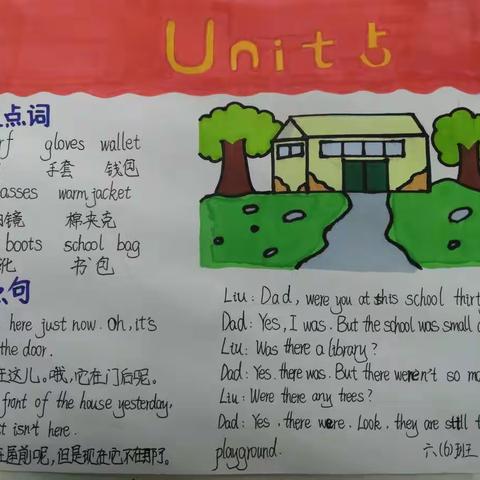 Unit 5
点词
gloves wallet
手套 钱包
asses warm jacket
镜 棉夹克
boots school bag
靴 书包
句
here just now. Oh, it's
the door.
在这儿。哦,它在门后呢。
front of the house yesterday,
t isn't here.
在屋前呢,但是现在它不在那了。
Liu: Dad, were you at this school thirt
Dad: Yes, I was. But the school was small
Liu: Was there a library?
Dad: Yes. there was. But there weren't so m
Liu: Were there any trees?
Dad: Yes, there were. Look, they are still t
playground.
六(6)班王